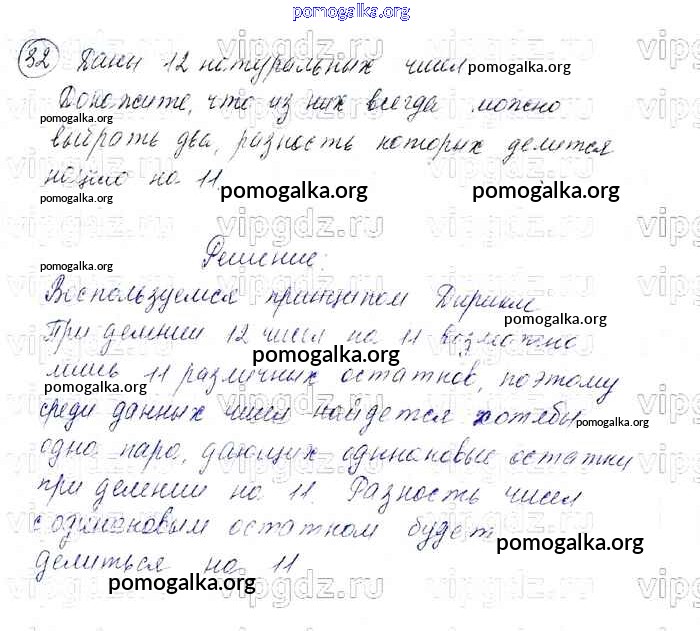 pomogalka.org
32 Даны 12 натуральных чисел pomogalka.org
Докажите, что из них всегда можно
pomogalka.org
выбрать два, разность которых делится
нацело на 11
pomogalka.org pomogalka.org pomogalka.org
vipgdz.ru
Решение:
pomogalka.org
Воспользуемся принципом Дирихле
pomogalka.org
При делении 12 чисел на 11 возможно
pomogalka.org
лишь 11 различных остатков, поэтому
pomogalka.org
среди данных чисел найдется хотябы pomogalka.org
одна пара, дающих одинаковые остатки
при делении на 11. Разность чисел
с одинаковым остатком будет
pomogalka.org
делиться на 11
pomogalka.org
vipgdz.ru